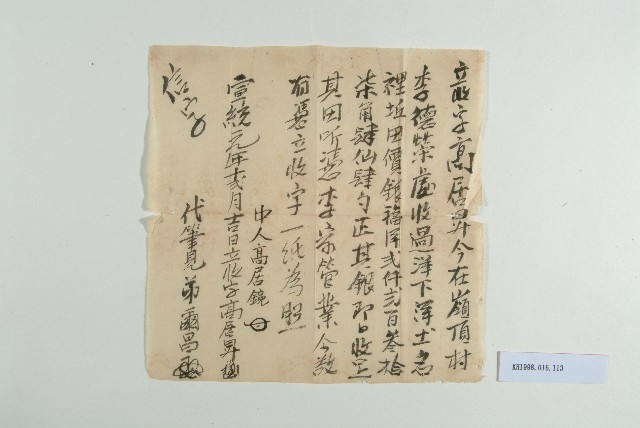 立收字高居昇今在嶺頂村
李德榮處收過洋下洋土名
裡坵田價銀福洋弍仟弍百叁拾
柒角肆仙肆勺正其銀即日收足
其田听憑李宗管業今欲
有憑立收字一紙為照
中人高居鏡
宣統元年弍月吉日立收字高居昇
代筆兄弟爾昌
信字
KH1998.016.113